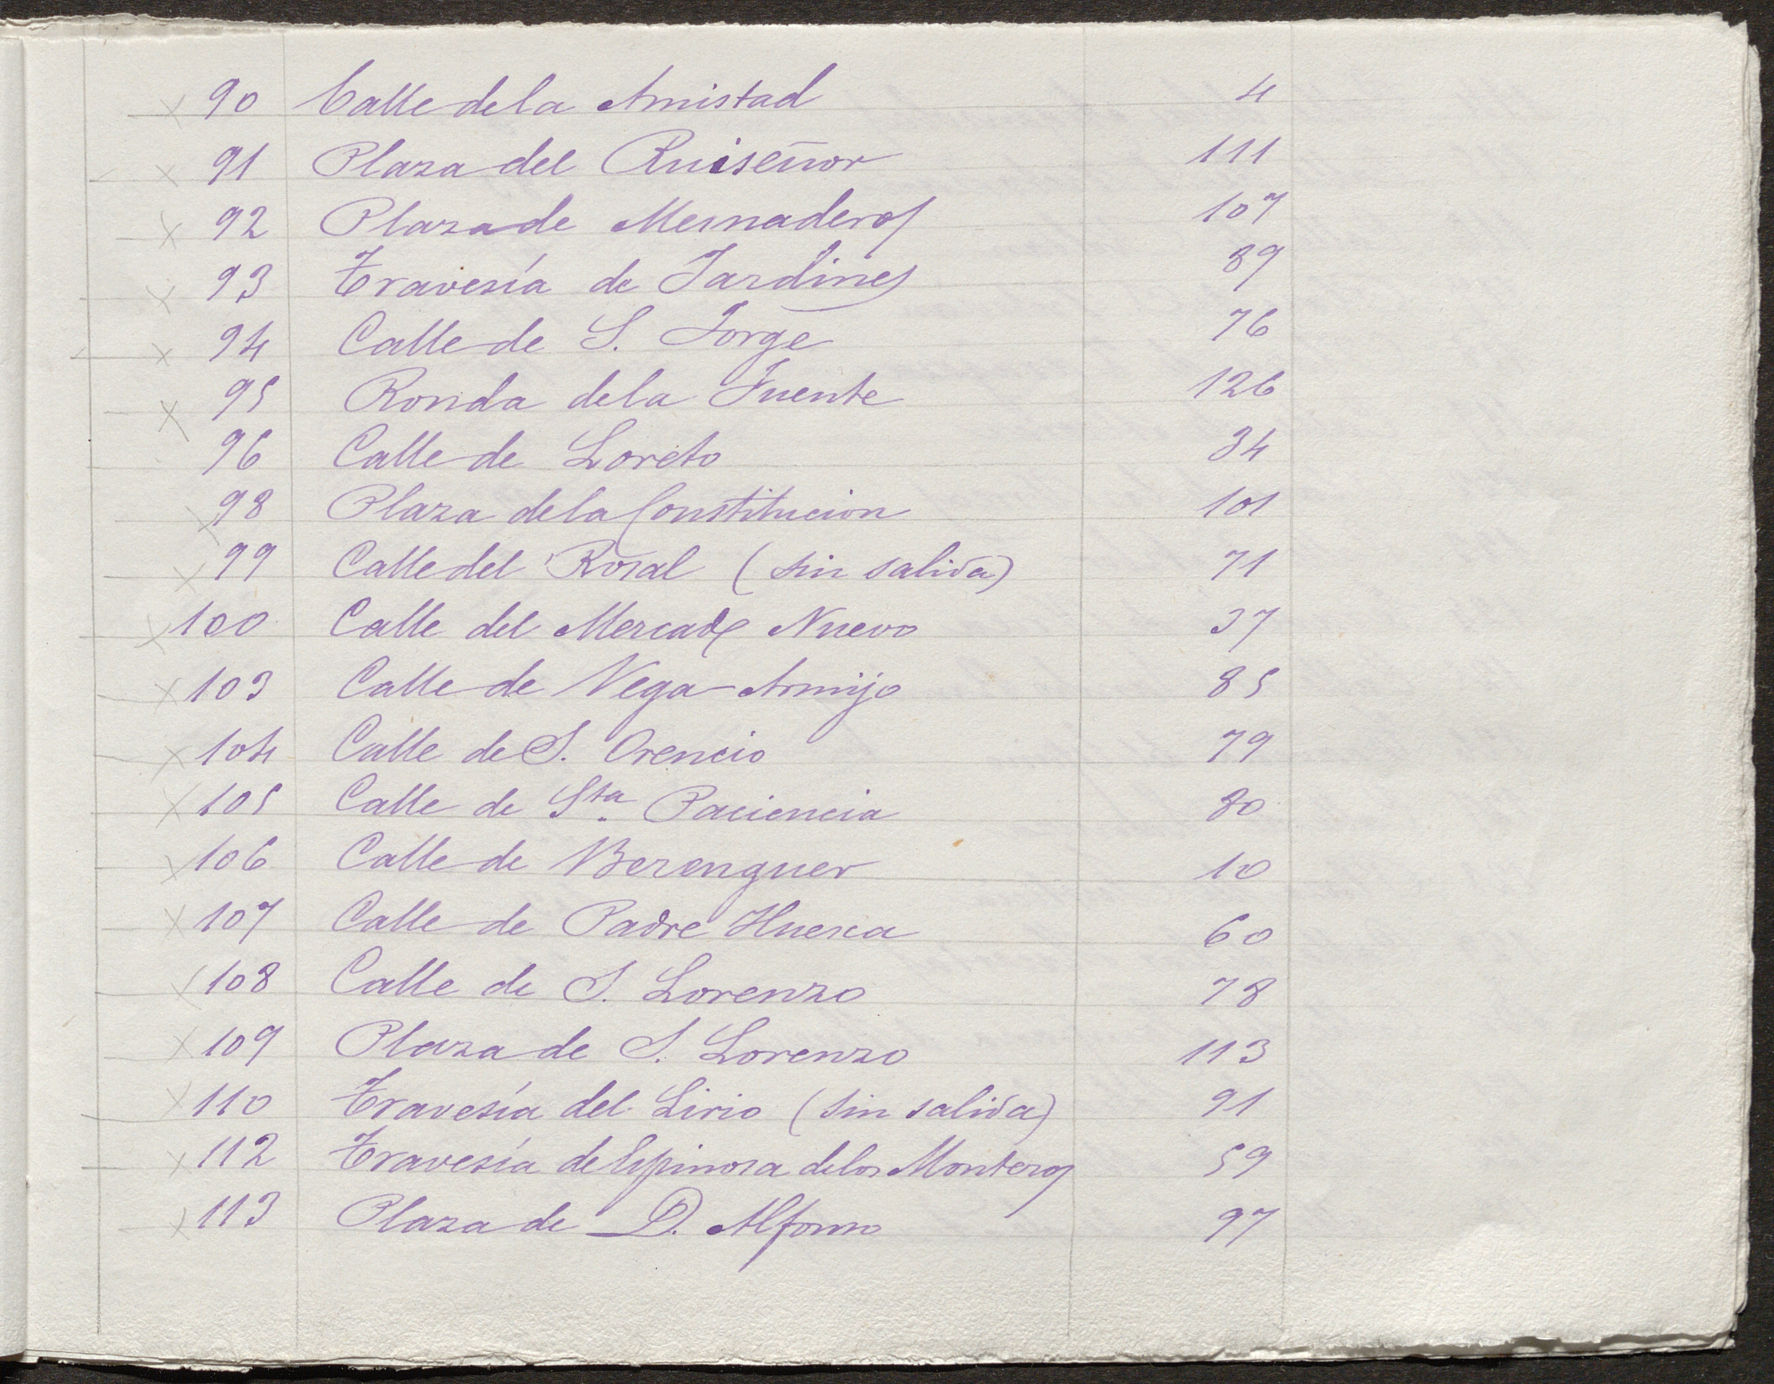 90 Calle de la Amistad 4
91 Plaza del Ruiseñor 111
92 Plaza de Mesnaderos 107
93 Travesía de Jardines 89
94 Calle de S. Jorge 76
95 Ronda de la Fuente 126
96 Calle de Loreto 34
98 Plaza de la Constitucion 101
99 Calle del Rosal (sin salida) 71
100 Calle del Mercado Nuevo 37
103 Calle de Vega Armijo 85
104 Calle de S. Orencio 79
105 Calle de Sta. Paciencia 80
106 Calle de Berenguer 10
107 Calle de Padre Huesca 60
108 Calle de S. Lorenzo 78
109 Plaza de S. Lorenzo 113
110 Travesía del Lirio (sin salida) 91
112 Travesía de Espinosa de los Monteros 59
113 Plaza de D. Alfonso 97